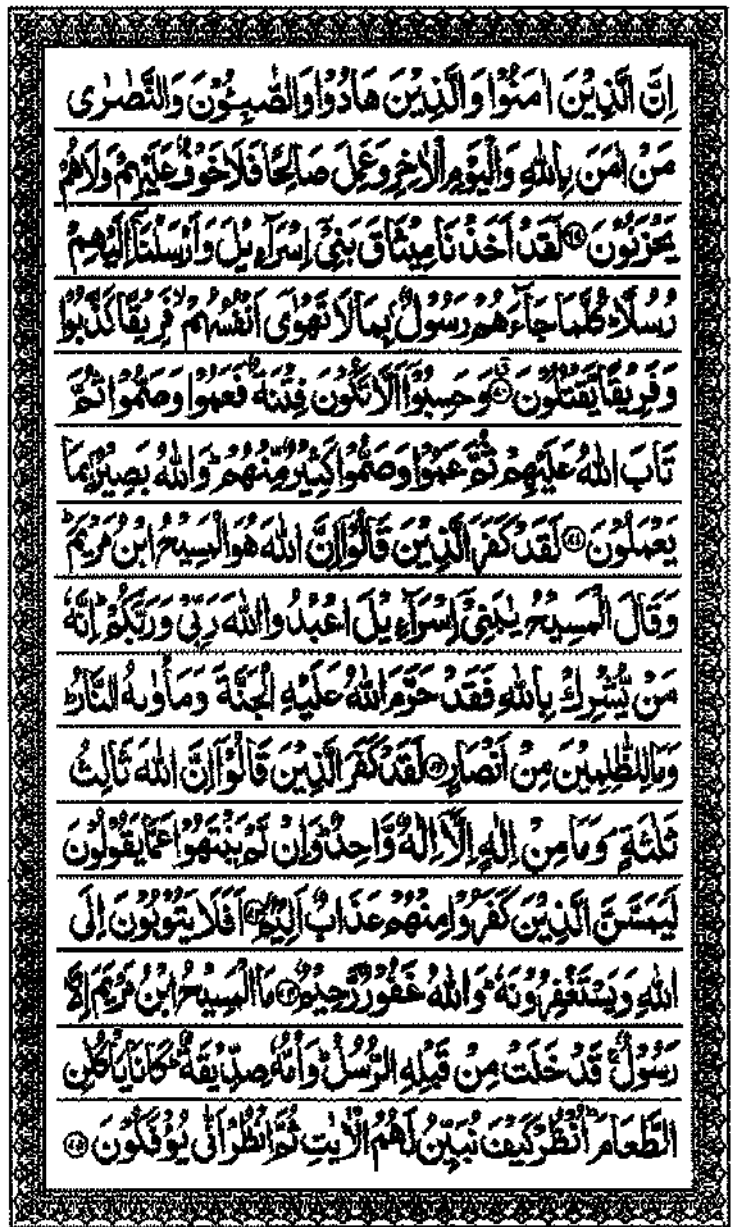 اِنَّ الَّذِيْنَ اٰمَنُوْا وَالَّذِيْنَ هَادُوْا وَالصّٰبِـُٔوْنَ وَالنَّصٰرٰى
مَنْ اٰمَنَ بِاللّٰهِ وَالْيَوْمِ الْاٰخِرِ وَعَمِلَ صَالِحًا فَلَا خَوْفٌ عَلَيْهِمْ وَلَا هُمْ
يَحْزَنُوْنَ ۶۹ لَقَدْ اَخَذْنَا مِيْثَاقَ بَنِيْٓ اِسْرَآءِيْلَ وَاَرْسَلْنَآ اِلَيْهِمْ
رُسُلًا ؕ كُلَّمَا جَآءَهُمْ رَسُوْلٌۢ بِمَا لَا تَهْوٰٓى اَنْفُسُهُمْ ۙ فَرِيْقًا كَذَّبُوْا
وَفَرِيْقًا يَّقْتُلُوْنَ ۷۰ وَحَسِبُوْٓا اَلَّا تَكُوْنَ فِتْنَةٌ فَعَمُوْا وَصَمُّوْا ثُمَّ
تَابَ اللّٰهُ عَلَيْهِمْ ثُمَّ عَمُوْا وَصَمُّوْا كَثِيْرٌ مِّنْهُمْ ؕ وَاللّٰهُ بَصِيْرٌۢ بِمَا
يَعْمَلُوْنَ ۷۱ لَقَدْ كَفَرَ الَّذِيْنَ قَالُوْٓا اِنَّ اللّٰهَ هُوَ الْمَسِيْحُ ابْنُ مَرْيَمَ ؕ
وَقَالَ الْمَسِيْحُ يٰبَنِيْٓ اِسْرَآءِيْلَ اعْبُدُوا اللّٰهَ رَبِّيْ وَرَبَّكُمْ ؕ اِنَّهٗ
مَنْ يُّشْرِكْ بِاللّٰهِ فَقَدْ حَرَّمَ اللّٰهُ عَلَيْهِ الْجَنَّةَ وَمَاْوٰىهُ النَّارُ ؕ
وَمَا لِلظّٰلِمِيْنَ مِنْ اَنْصَارٍ ۷۲ لَقَدْ كَفَرَ الَّذِيْنَ قَالُوْٓا اِنَّ اللّٰهَ ثَالِثُ
ثَلٰثَةٍ ۘ وَمَا مِنْ اِلٰهٍ اِلَّآ اِلٰهٌ وَّاحِدٌ ؕ وَاِنْ لَّمْ يَنْتَهُوْا عَمَّا يَقُوْلُوْنَ
لَيَمَسَّنَّ الَّذِيْنَ كَفَرُوْا مِنْهُمْ عَذَابٌ اَلِيْمٌ ۷۳ اَفَلَا يَتُوْبُوْنَ اِلَى
اللّٰهِ وَيَسْتَغْفِرُوْنَهٗ ؕ وَاللّٰهُ غَفُوْرٌ رَّحِيْمٌ ۷۴ مَا الْمَسِيْحُ ابْنُ مَرْيَمَ اِلَّا
رَسُوْلٌ ۚ قَدْ خَلَتْ مِنْ قَبْلِهِ الرُّسُلُ ؕ وَاُمُّهٗ صِدِّيْقَةٌ ؕ كَانَا يَاْكُلٰنِ
الطَّعَامَ ؕ اُنْظُرْ كَيْفَ نُبَيِّنُ لَهُمُ الْاٰيٰتِ ثُمَّ انْظُرْ اَنّٰى يُؤْفَكُوْنَ ۷۵